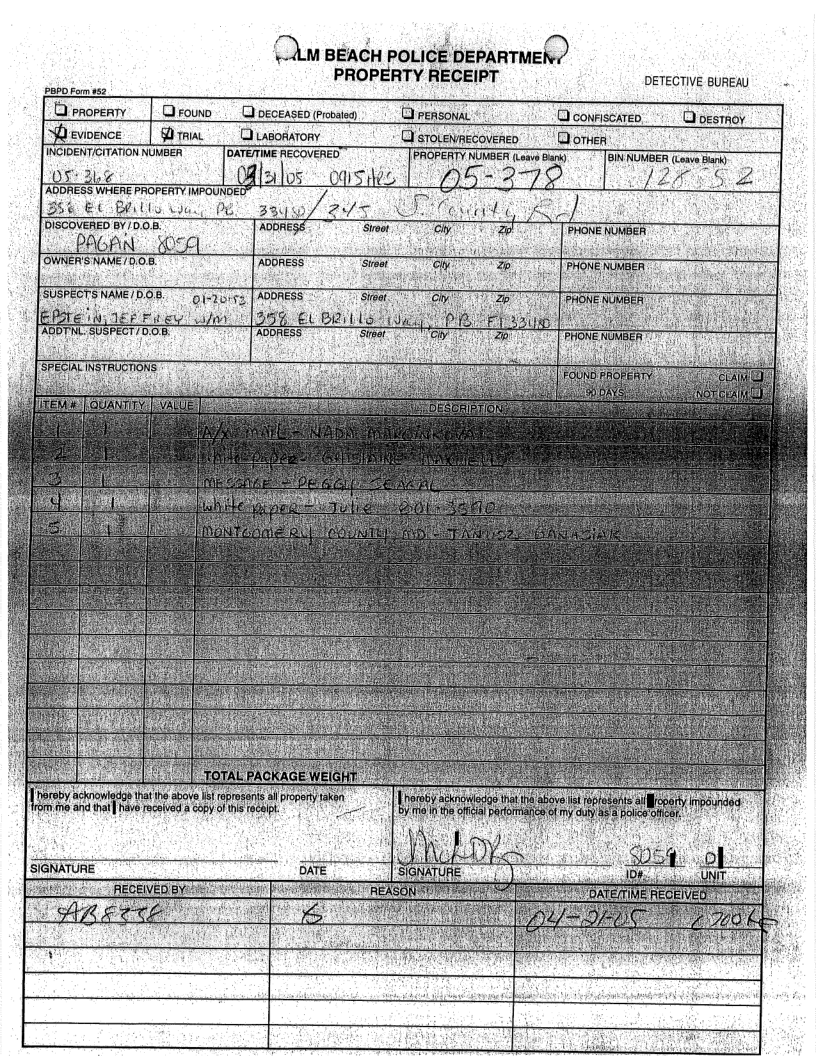 LM BEACH POLICE DEPARTMENT
PROPERTY RECEIPT
DETECTIVE BUREAU
PBPD Form #52
PROPERTY FOUND DECEASED (Probated) PERSONAL CONFISCATED DESTROY
EVIDENCE TRIAL LABORATORY STOLEN/RECOVERED OTHER
INCIDENT/CITATION NUMBER DATE/TIME RECOVERED PROPERTY NUMBER (Leave Blank) BIN NUMBER (Leave Blank)
05-368 31/05 0915 HRS 05-378
ADDRESS WHERE PROPERTY IMPOUNDED
358 EL BRILLO WAY, PB 33480 / 345 S. County Rd
DISCOVERED BY / D.O.B. ADDRESS Street City Zip PHONE NUMBER
PAGAN 8059
OWNER'S NAME / D.O.B. ADDRESS Street City Zip PHONE NUMBER
SUSPECT'S NAME / D.O.B. 01-20-53 ADDRESS Street City Zip PHONE NUMBER
EPSTEIN, JEFFREY W/M 358 EL BRILLO WAY, PB Fl 33480
ADDT'NL. SUSPECT / D.O.B. ADDRESS Street City Zip PHONE NUMBER
SPECIAL INSTRUCTIONS FOUND PROPERTY CLAIM
90 DAYS NOT CLAIM
ITEM # QUANTITY VALUE DESCRIPTION
1 1 MAIL - NADA
2 1 PAPER - GHISLAINE MAXWELL
3 1 MESSAGE - PEGGY
4 1 White paper - Julie 801-3590
5 1 MONTGOMERY COUNTY, MD - JANUSZ BANASIAK
TOTAL PACKAGE WEIGHT
I hereby acknowledge that the above list represents all property taken
from me and that I have received a copy of this receipt.
I hereby acknowledge that the above list represents all roperty impounded
by me in the official performance of my duty as a police officer.
8059
SIGNATURE DATE SIGNATURE ID# UNIT
RECEIVED BY REASON DATE/TIME RECEIVED
AB8338 04-21-05